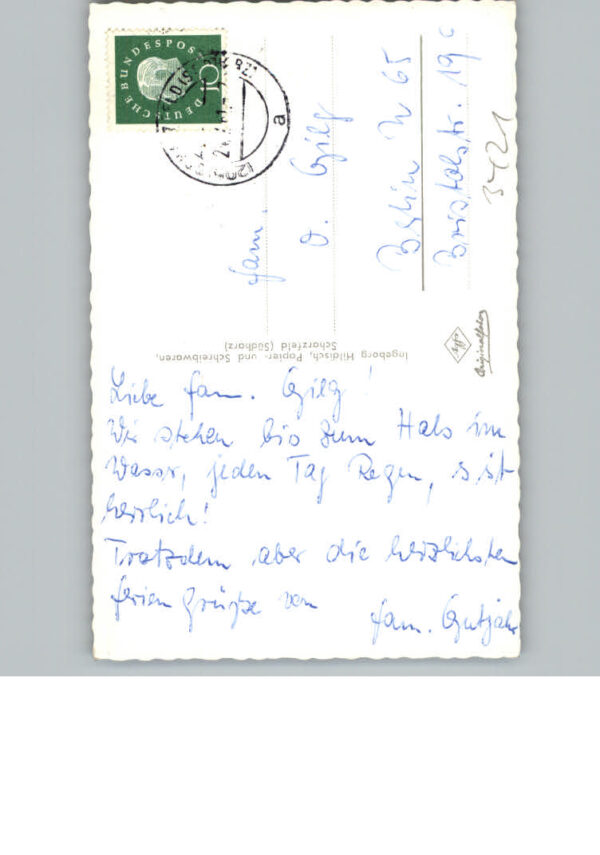 Liebe Fam. Gilg!
Wir stehen bis zum Hals im
Wasser, jeden Tag Regen, s ist
herrlich!
Trotzdem aber die herzlichsten
Feriengrüße von
Fam. Gutjahr
Fam.
O. Gilg
Berlin N 65
Bristolstr. 19c
3421
DEUTSCHE BUNDESPOST
10
a
Ingeborg Hildisch, Papier- und Schreibwaren,
Scharzfeld (Südharz)
Agfa
Originalfoto